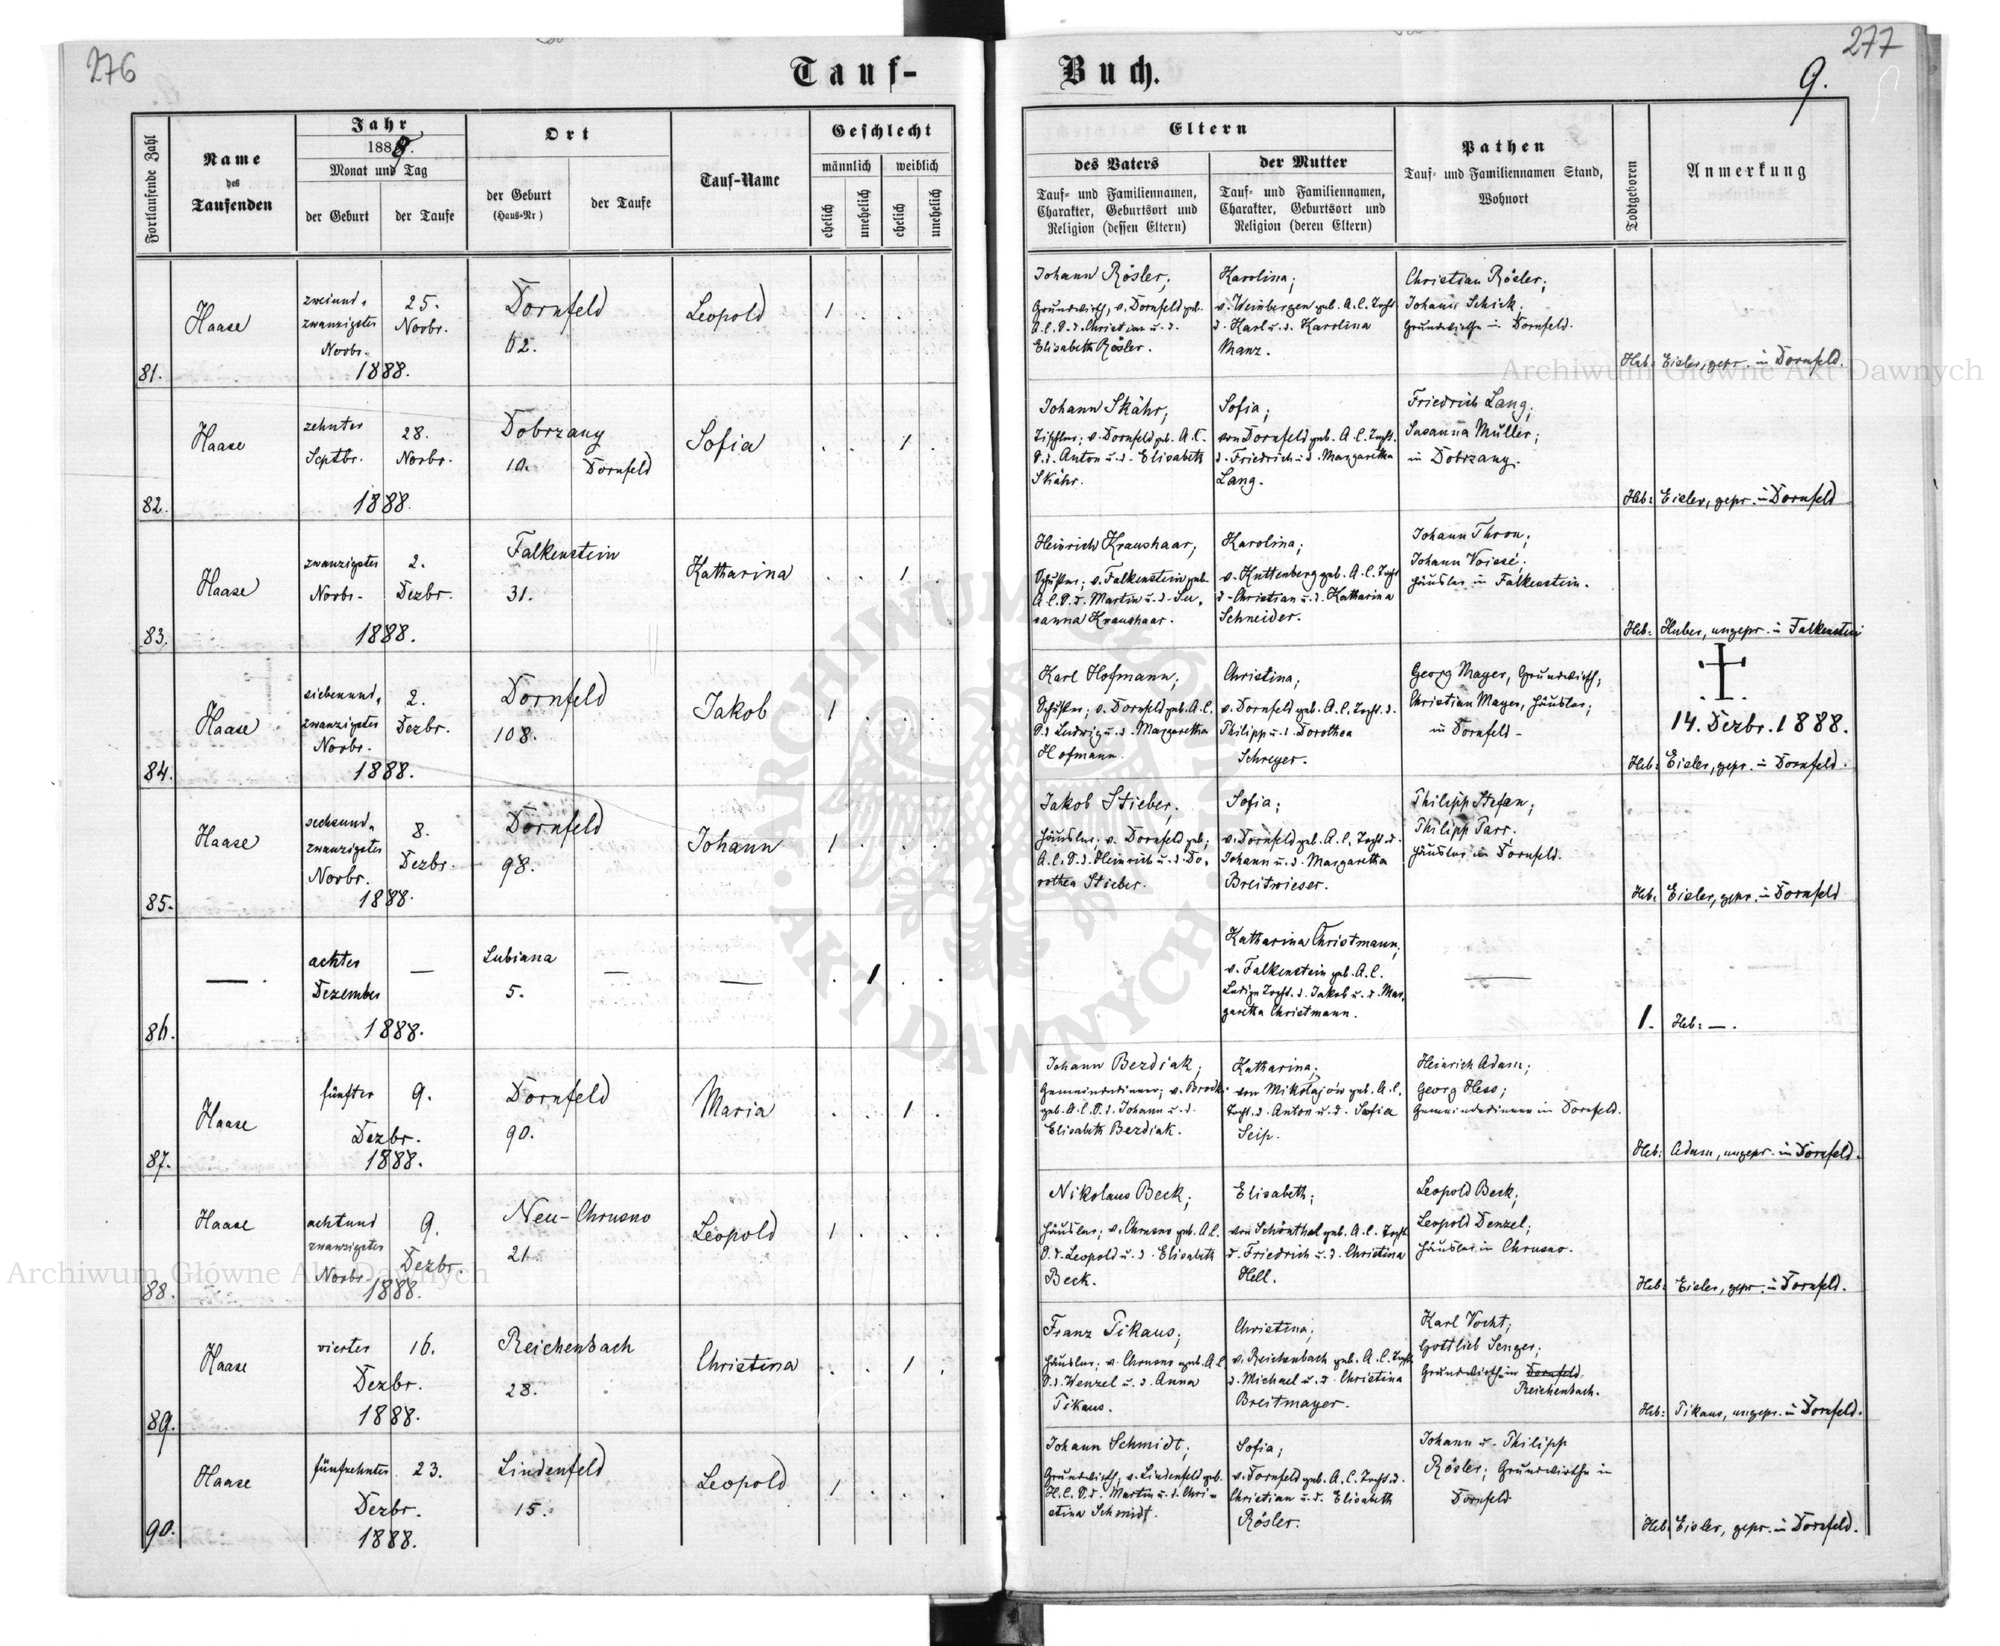 276
277
9.
Tauf-
Buch.
Fortlaufende Zahl
Name
des
Taufenden
Jahr
1888.
Monat und Tag
der Geburt
der Taufe
Ort
der Geburt
(Haus-Nr)
der Taufe
Tauf-Name
Geschlecht
männlich
weiblich
ehelich
unehelich
ehelich
unehelich
Eltern
des Vaters
Tauf- und Familiennamen,
Charakter, Geburtsort und
Religion (dessen Eltern)
der Mutter
Tauf- und Familiennamen,
Charakter, Geburtsort und
Religion (deren Eltern)
Pathen
Tauf- und Familiennamen Stand,
Wohnort
Todtgeboren
Anmerkung
81.
Haase
zweiund-
zwanzigster
Novbr.
1888.
25.
Novbr.
Dornfeld
62.
Leopold
1 . . .
Johann Rösler,
Grundwirth, v. Dornfeld geb.
A.C. S.d. Christian u. d.
Elisabeth Rösler.
Karolina;
v. Weinbergen geb. A.C. Tocht.
d. Karl u. d. Karolina
Manz.
Christian Rösler;
Johann Schick,
Grundwirthe in Dornfeld.
Heb: Eisler, gepr. in Dornfeld.
82.
Haase
zehnter
Septbr.
1888.
28.
Novbr.
Dobrzany
10.
Dornfeld
Sofia
. . 1 .
Johann Skähr,
Tischler; v. Dornfeld geb. A.C.
S.d. Anton u. d. Elisabeth
Skähr.
Sofia;
von Dornfeld geb. A.C. Tocht.
d. Friedrich u. d. Margaretha
Lang.
Friedrich Lang,
Susanna Müller;
in Dobrzany.
Heb: Eisler, gepr. in Dornfeld
83.
Haase
zwanzigster
Novbr.
1888.
2.
Dezbr.
Falkenstein
31.
Katharina
. . 1 .
Heinrich Kraushaar,
Schuster; v. Falkenstein geb.
A.C. S.d. Martin u. d. Su-
sanna Kraushaar.
Karolina;
v. Kuttenberg geb. A.C. Tocht
d. Christian u. d. Katharina
Schneider.
Johann Thron,
Johann Voissé,
Häusler in Falkenstein.
Heb: Huber, ungepr. in Falkenstein
84.
Haase
siebenund-
zwanzigster
Novbr.
1888.
2.
Dezbr.
Dornfeld
108.
Jakob
1 . . .
Karl Hofmann;
Schuster; v. Dornfeld geb. A.C.
S.d. Ludwig u. d. Margaretha
Hofmann.
Christina;
v. Dornfeld geb. A.C. Tocht. d.
Philipp u. d. Dorothea
Schreyer.
Georg Mayer, Grundwirth;
Christian Mayer, Häusler;
in Dornfeld.
14. Dezbr. 1888.
Heb: Eisler, gepr. in Dornfeld.
85.
Haase
sechsund-
zwanzigster
Novbr.
1888.
8.
Dezbr.
Dornfeld
98.
Johann
1 . . .
Jakob Stieber,
Häusler; v. Dornfeld geb;
A.C. S.d. Heinrich u. d. Do-
rothea Stieber.
Sofia;
v. Dornfeld geb. A.C. Tocht. d.
Johann u. d. Margaretha
Breitwieser.
Philipp Stefan,
Philipp Parr.
Häusler in Dornfeld.
Heb: Eisler, gepr. in Dornfeld
86.
—
achter
Dezember
1888.
—
Lubiana
5.
—
—
. 1 . .
Katharina Christmann,
v. Falkenstein geb. A.C.
Ledige Tocht. d. Jakob u. d. Mar-
garetha Christmann.
—
1.
Heb: —.
87.
Haase
fünfter
Dezbr.
1888.
9.
Dornfeld
90.
Maria
. . 1 .
Johann Bezdiak,
Gemeindediener; v. Brodki
geb. A.C. S.d. Johann u. d.
Elisabeth Bezdiak.
Katharina;
von Mikołajów geb. A.C.
Tocht. d. Anton u. d. Sofia
Seip.
Heinrich Adam;
Georg Hess;
Gemeindediener in Dornfeld.
Heb: Adam, ungepr. in Dornfeld.
88.
Haase
achtund
zwanzigster
Novbr.
1888.
9.
Dezbr.
Neu-Chrusno
21.
Leopold
1 . . .
Nikolaus Beck,
Häusler; v. Chrusno geb. A.C.
S.d. Leopold u. d. Elisabeth
Beck.
Elisabeth;
von Schönthal geb. A.C. Tocht
d. Friedrich u. d. Christina
Hell.
Leopold Beck,
Leopold Denzel;
Häusler in Chrusno.
Heb: Eisler, gepr. in Dornfeld.
89.
Haase
vierter
Dezbr.
1888.
16.
Reichenbach
28.
Christina
. . 1 .
Franz Pikaus,
Häusler; v. Chrusno geb. A.C
S.d. Wenzel u. d. Anna
Pikaus.
Christina;
v. Reichenbach geb. A.C. Tocht
d. Michael u. d. Christina
Breitmayer.
Karl Vocht;
Gottlieb Senger;
Grundwirthe in Dornfeld.
Reichenbach.
Heb: Pikaus, ungepr. in Dornfeld.
90.
Haase
fünfzehnter
Dezbr.
1888.
23.
Lindenfeld
15.
Leopold
1 . . .
Johann Schmidt,
Grundwirth; v. Lindenfeld geb.
H.C. S.d. Martin u. d. Chri-
stina Schmidt.
Sofia;
v. Dornfeld geb. A.C. Tocht. d.
Christian u. d. Elisabeth
Rösler.
Johann u. Philipp
Rösler; Grundwirthe in
Dornfeld
Heb: Eisler, gepr. in Dornfeld.
Archiwum Główne Akt Dawnych
Archiwum Główne Akt Dawnych
ARCHIWUM GŁÓWNE AKT DAWNYCH